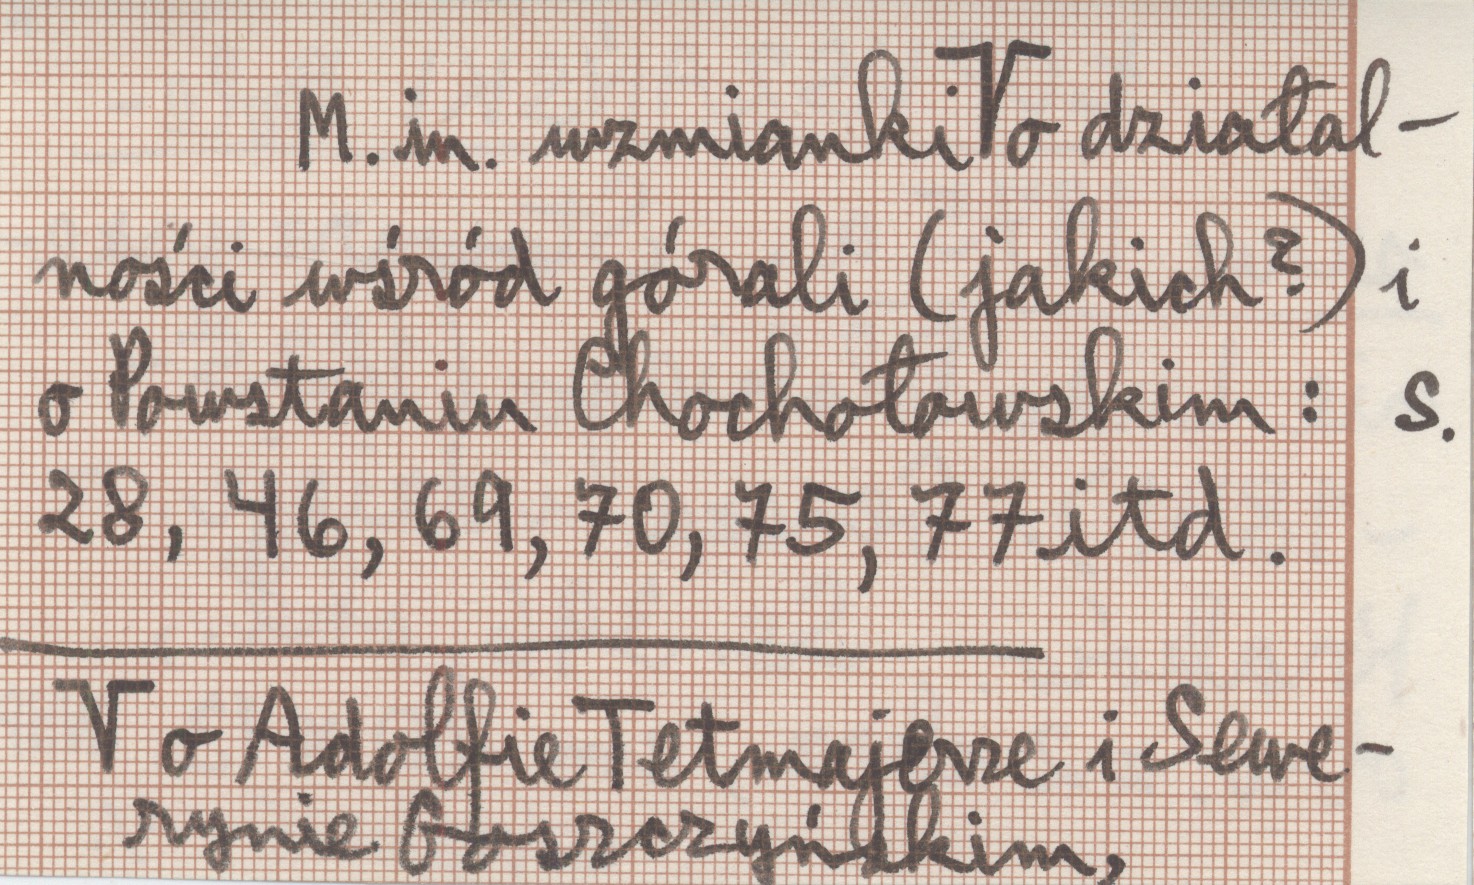 M. in. wzmianki V o działal-
ności wśród górali (jakich?) i
o Powstaniu Chochołowskim: s.
28, 46, 69, 70, 75, 77 itd.
V o Adolfie Tetmajerze i Sewe-
rynie Goszczyńskim,